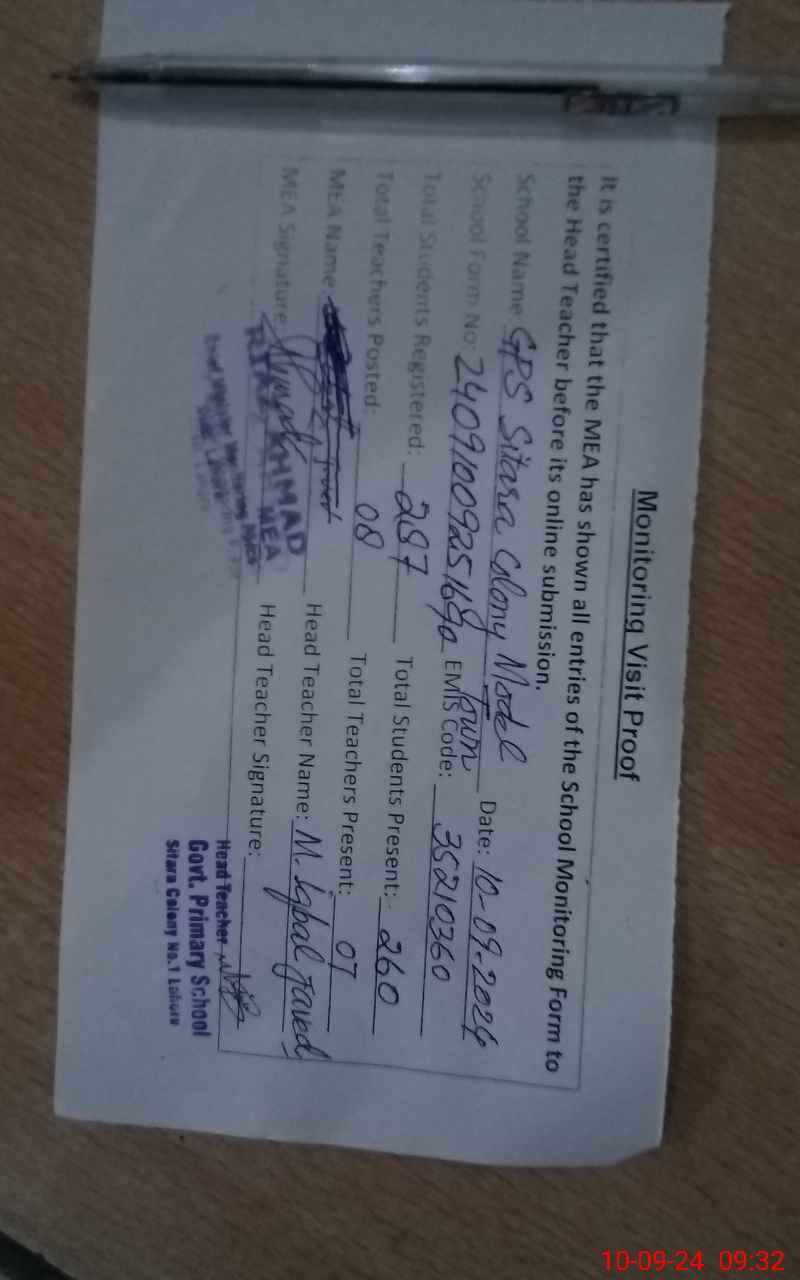 Monitoring Visit Proof
It is certified that the MEA has shown all entries of the School Monitoring Form to
the Head Teacher before its online submission.
School Name GPS Sitara Colony Model Town Date: 10-09-2024
School Form No: EMIS Code: 35210360
Total Students Registered: 287 Total Students Present: 260
Total Teachers Posted: 08 Total Teachers Present: 07
MEA Name: Head Teacher Name: M. Iqbal Javed
MEA Signature: Head Teacher Signature:
AHMAD
MEA
Head Teacher
Govt. Primary School
Sitara Colony No.1 Lahore
10-09-24 09:32